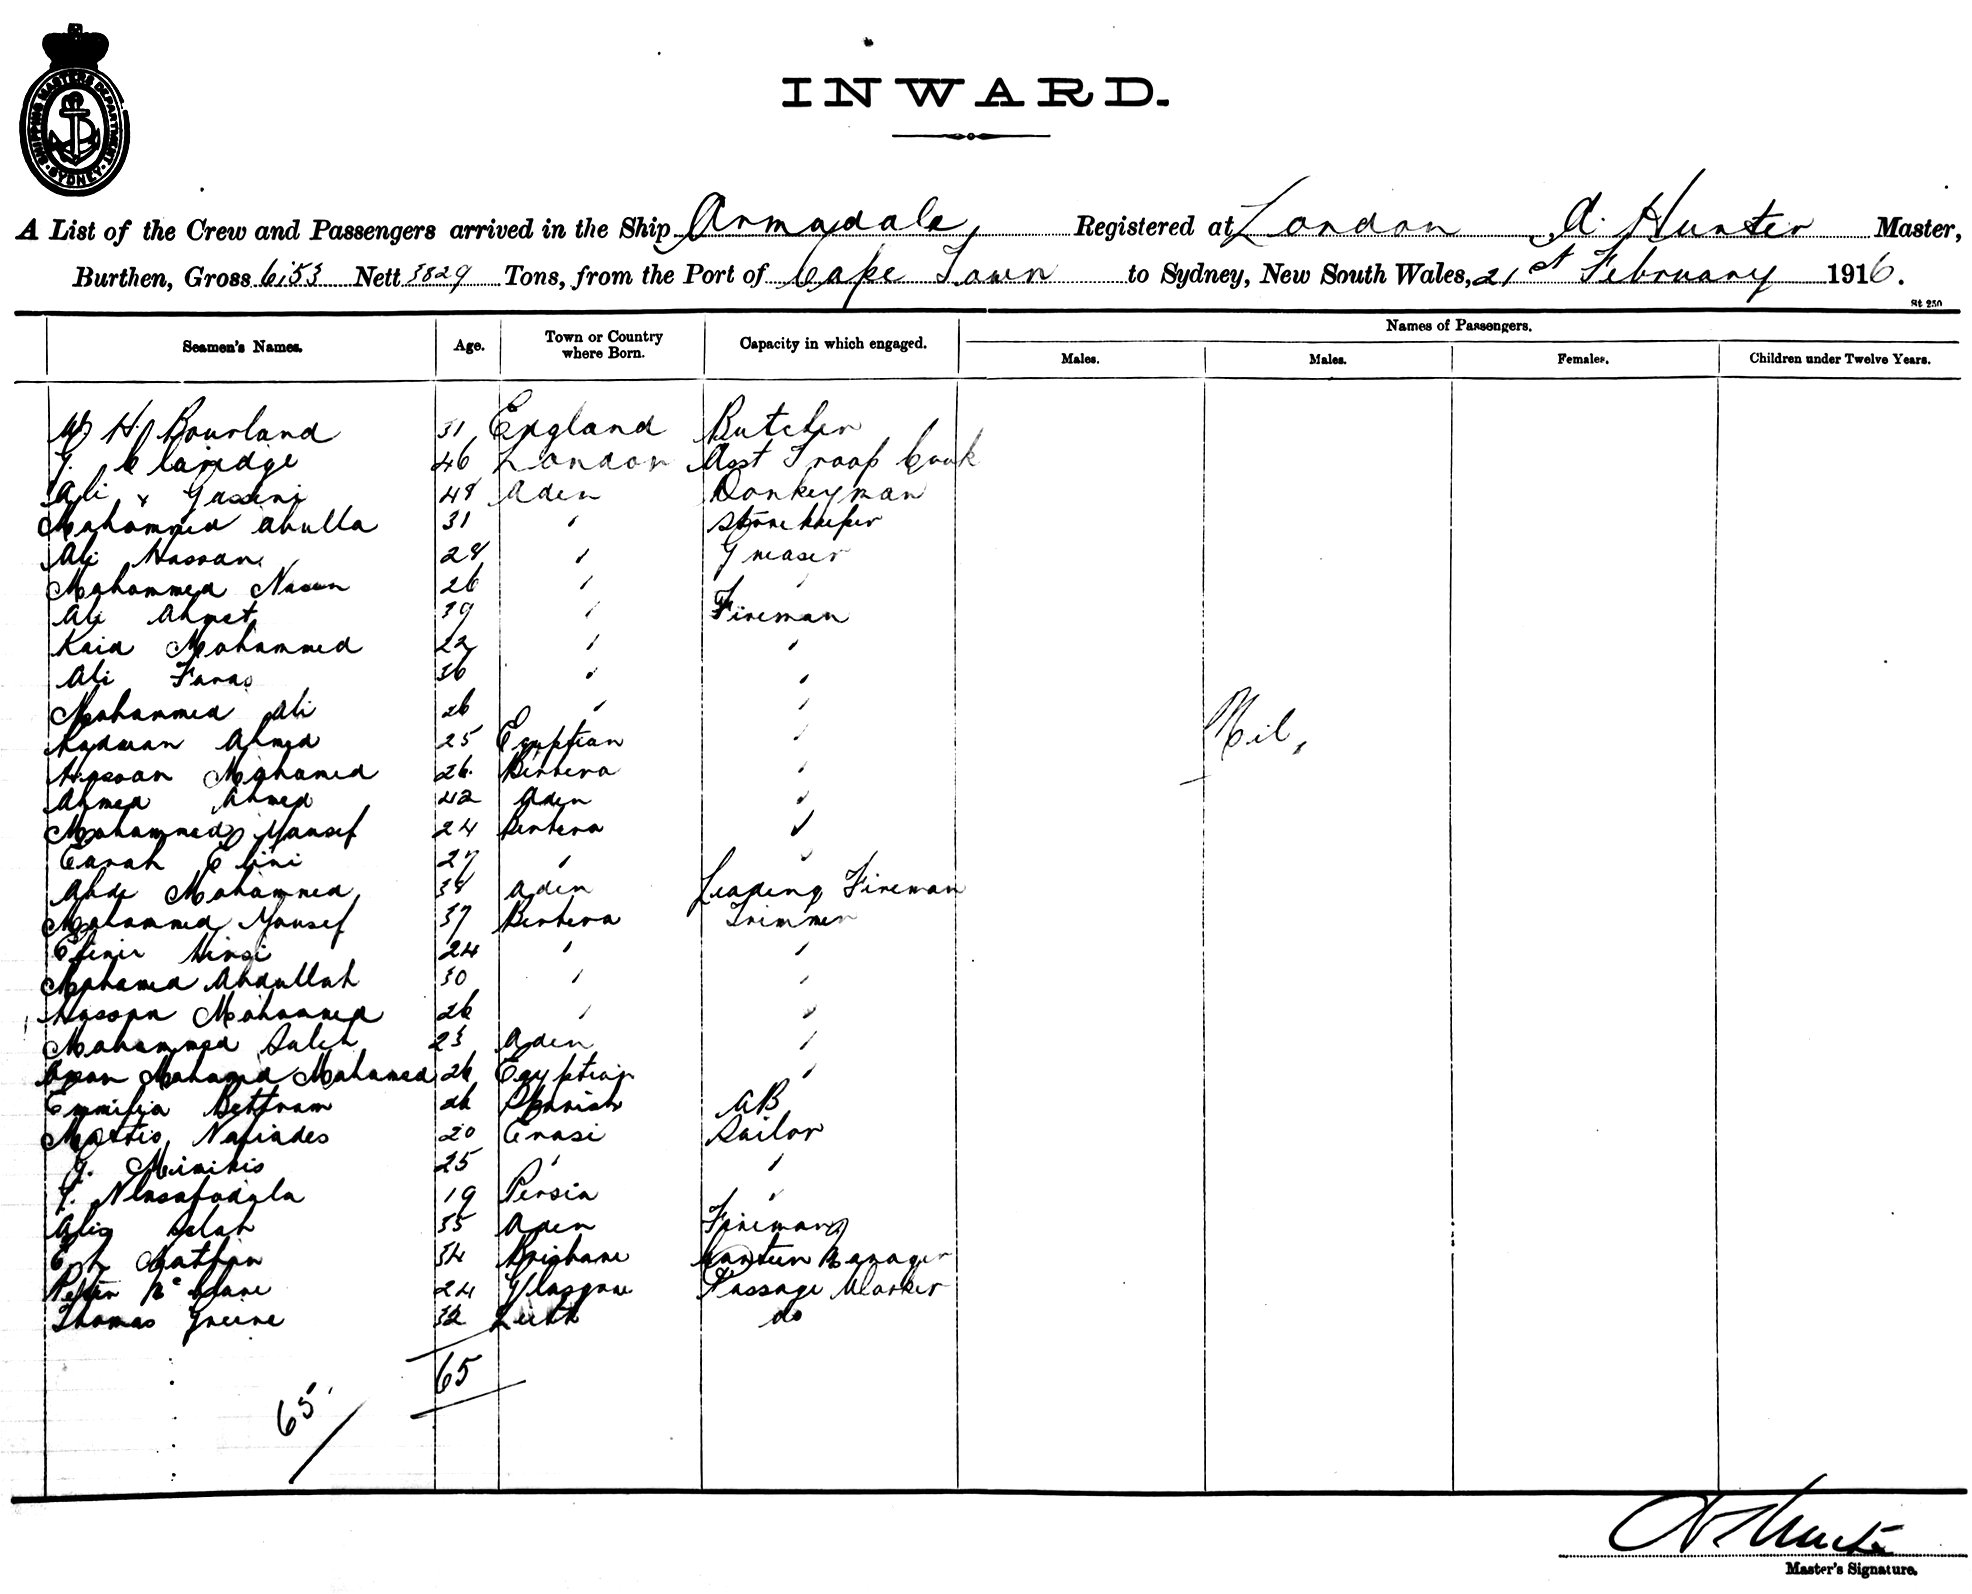 SHIPPING MASTERS DEPARTMENT
SYDNEY
INWARD.
A List of the Crew and Passengers arrived in the Ship Armadale, Registered at London A. Hunter Master,
Burthen, Gross 6153 Nett 3829 Tons, from the Port of Cape Town to Sydney, New South Wales, 21st February 1916.
St 250
Seamen's Names. Age. Town or Country where Born. Capacity in which engaged. Names of Passengers.
Males. Males. Females. Children under Twelve Years.
W H Bourland 31 England Butcher
J. Claridge 46 London Asst Troop Cook
Ali 48 Aden Donkeyman
Mohammed Abulla 31 " Storekeeper
Ali Hassan 28 " Greaser
Mohammed Nasen 26 " "
Ali Ahmet 39 " Fireman
Kaid Mohammed 22 " "
Ali Farao 36 " "
Mohammed Ali 26 " "
Nil,
Kadwan Ahmed 25 Egyptian "
Hassan Mohamed 26. Berbera "
Ahmed Ahmed 42 Aden "
Mohammed Yousef 24 Berbera "
Farah Elini 27 " "
Abdi Mohammed 38 Aden Leading Fireman
Mohammed Yousef 37 Berbera Trimmer
Hirsi 24 " "
Mohamed Abdullah 30 " "
Hassan Mohammed 26 " "
Mohammed Saleh 23 Aden "
Mohamed Mohamed 26 Egyptian "
Bettram 26 Spanish AB
Nafiades 20 Sailor
G. Mimikis 25 " "
19 Persia "
Salah 35 Aden Fireman
34 Brisbane Canteen Manager
Peter Mc 24 Glasgow Passage Worker
Thomas Greene 32 Leith do
65
65
Master's Signature.